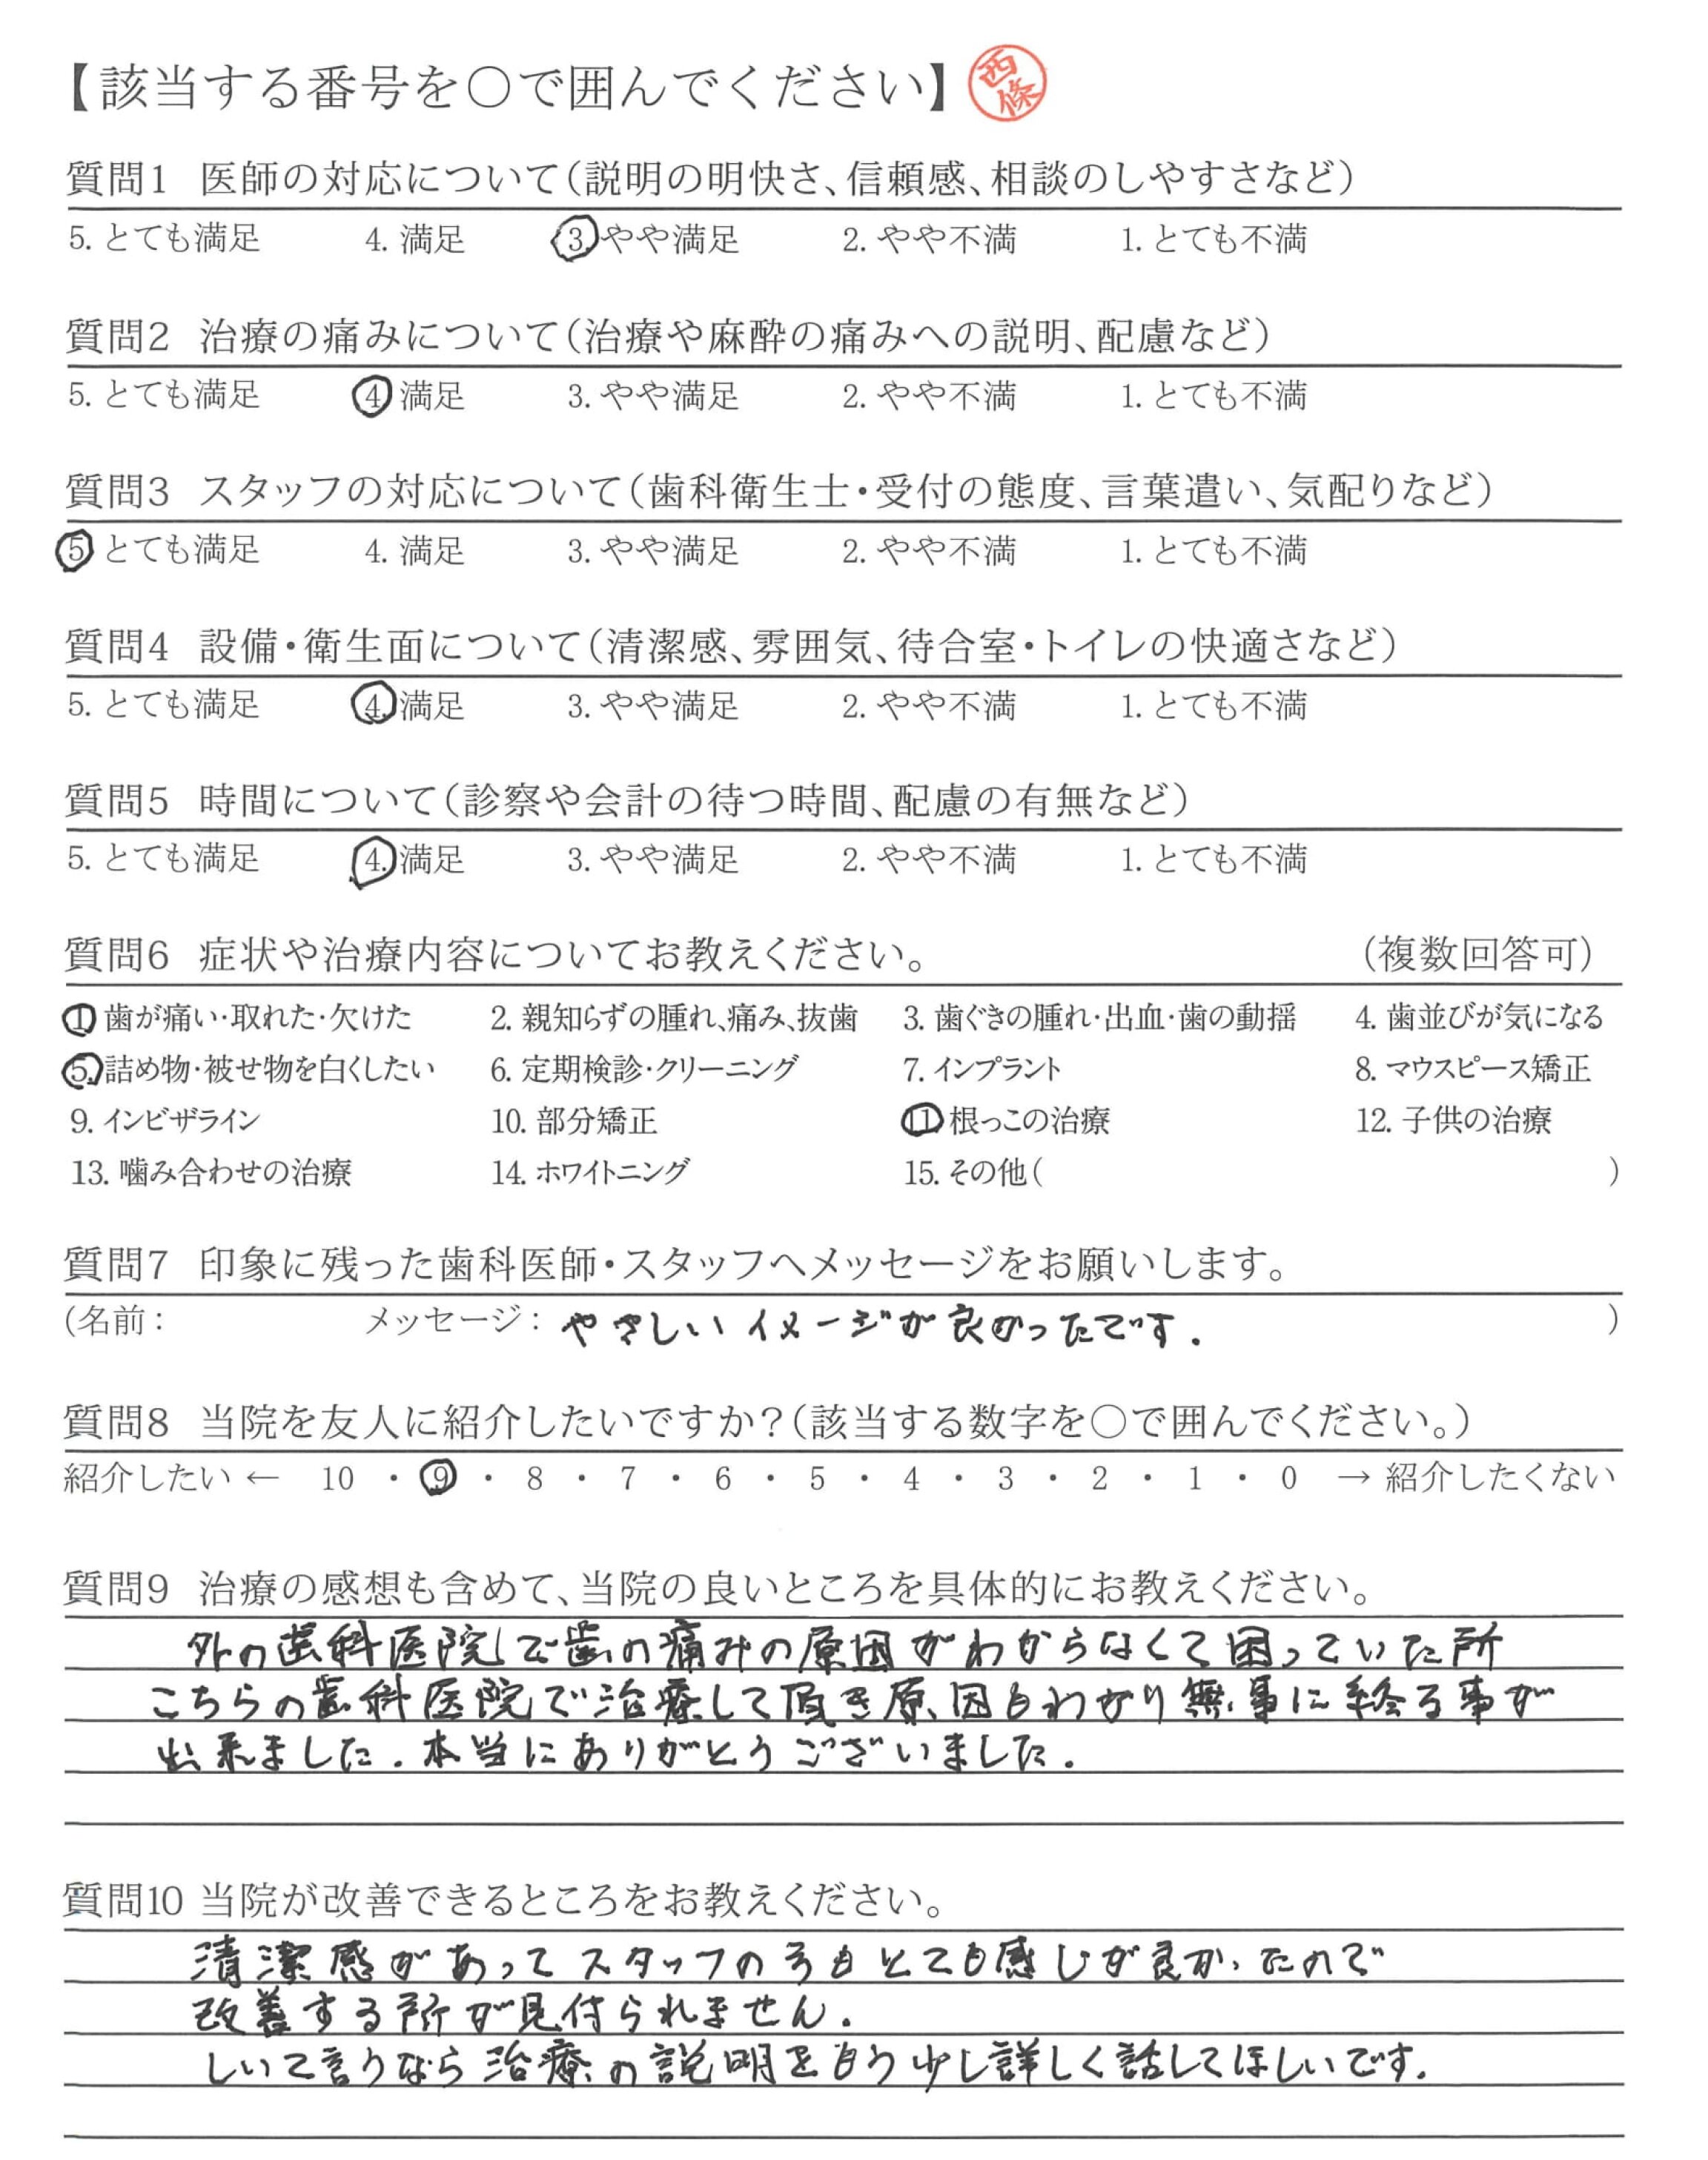 【該当する番号を〇で囲んでください】 西條
質問1 医師の対応について(説明の明快さ、信頼感、相談のしやすさなど)
5. とても満足 4. 満足 3. やや満足 2. やや不満 1. とても不満
質問2 治療の痛みについて(治療や麻酔の痛みへの説明、配慮など)
5. とても満足 4 満足 3. やや満足 2. やや不満 1. とても不満
質問3 スタッフの対応について(歯科衛生士・受付の態度、言葉遣い、気配りなど)
5 とても満足 4. 満足 3. やや満足 2. やや不満 1. とても不満
質問4 設備・衛生面について(清潔感、雰囲気、待合室・トイレの快適さなど)
5. とても満足 4. 満足 3. やや満足 2. やや不満 1. とても不満
質問5 時間について(診察や会計の待つ時間、配慮の有無など)
5. とても満足 4. 満足 3. やや満足 2. やや不満 1. とても不満
質問6 症状や治療内容についてお教えください。 (複数回答可)
1 歯が痛い・取れた・欠けた 2. 親知らずの腫れ、痛み、抜歯 3. 歯ぐきの腫れ・出血・歯の動揺 4. 歯並びが気になる
5. 詰め物・被せ物を白くしたい 6. 定期検診・クリーニング 7. インプラント 8. マウスピース矯正
9. インビザライン 10. 部分矯正 11. 根っこの治療 12. 子供の治療
13. 噛み合わせの治療 14. ホワイトニング 15. その他( )
質問7 印象に残った歯科医師・スタッフへメッセージをお願いします。
(名前: メッセージ: やさしいイメージが良かったです. )
質問8 当院を友人に紹介したいですか?(該当する数字を〇で囲んでください。)
紹介したい ← 10 ・ 9 ・ 8 ・ 7 ・ 6 ・ 5 ・ 4 ・ 3 ・ 2 ・ 1 ・ 0 → 紹介したくない
質問9 治療の感想も含めて、当院の良いところを具体的にお教えください。
外の歯科医院で歯の痛みの原因がわからなくて困っていた所
こちらの歯科医院で治療して頂き原因もわかり無事に終る事が
出来ました. 本当にありがとうございました.
質問10 当院が改善できるところをお教えください。
清潔感があってスタッフの方もとても感じが良かったので
改善する所が見付られません.
しいて言うなら治療の説明をもう少し詳しく話してほしいです.